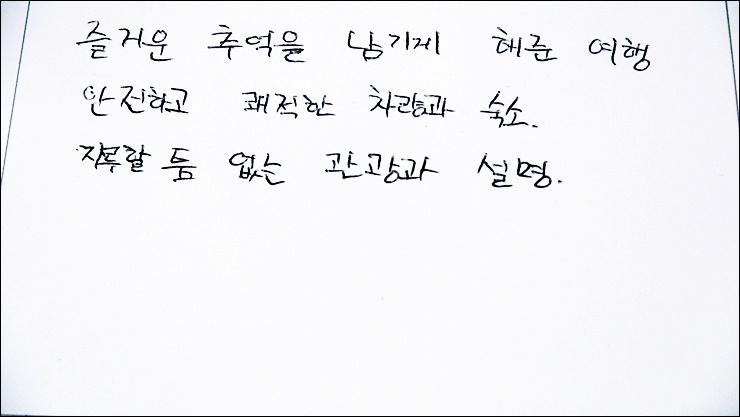 즐거운 추억을 남기게 해준 여행
안전하고 쾌적한 차량과 숙소.
지루할 틈 없는 관광과 설명.